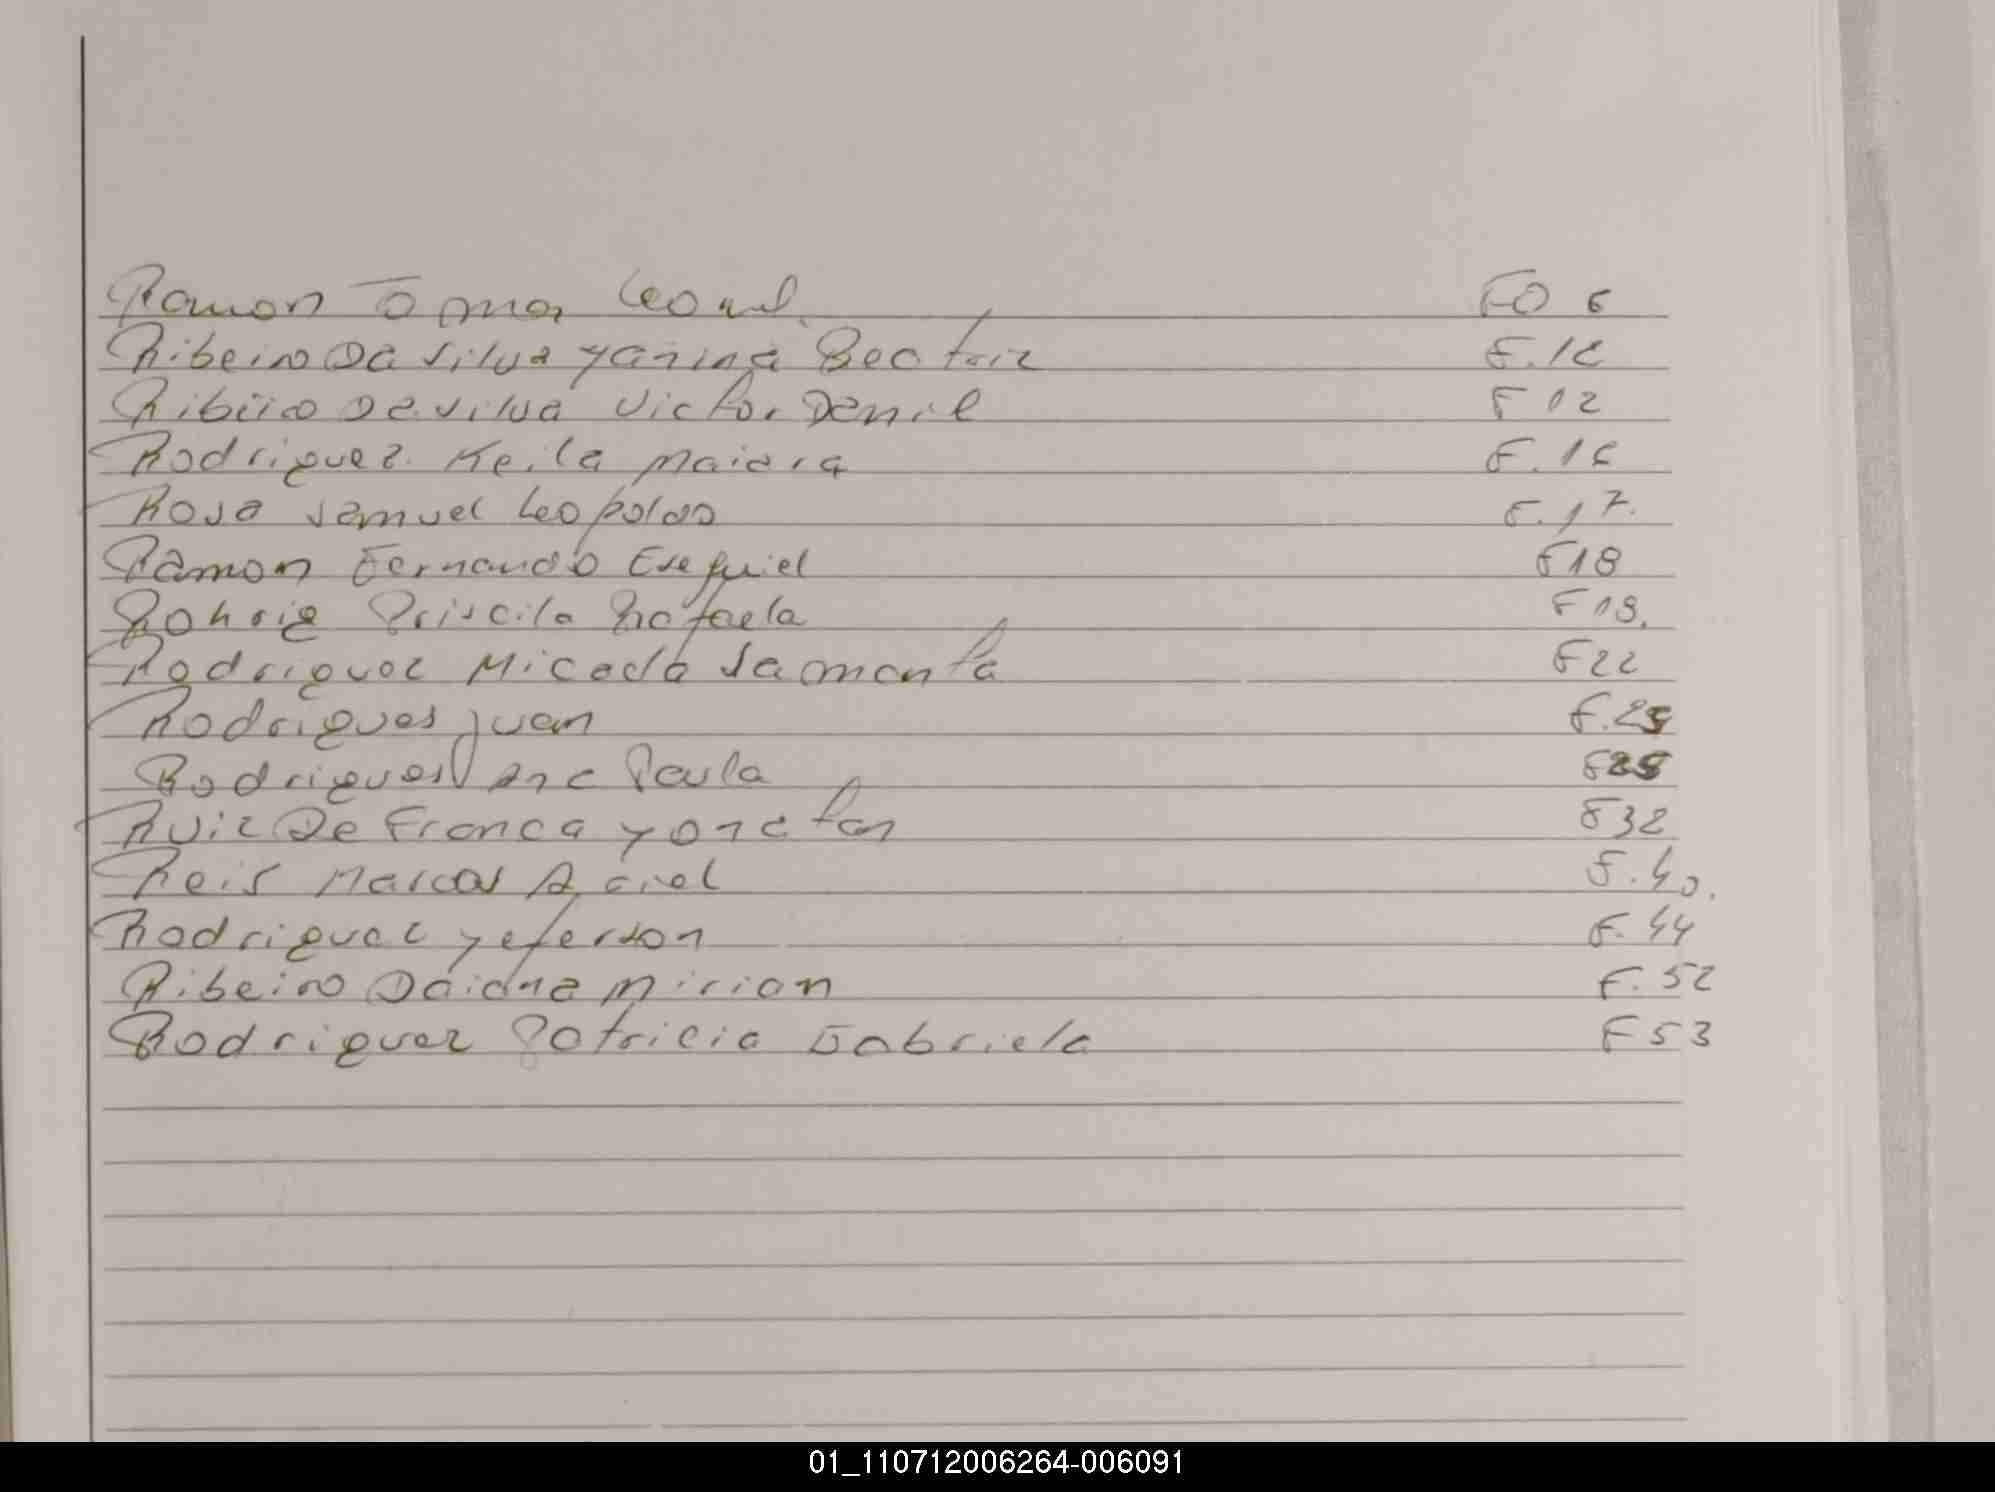 Ramon Tomas Leonel FO 6
Ribeiro Da Silva yanina Beatriz F.12
Ribeiro Da Silva Victor Daniel F 12
Rodriguez Keila Maiara F.16
Rosa Samuel Leopoldo F.17.
Ramon Fernando Esequiel F18
Rohrig Priscila Rafaela F 19.
Rodriguez Micaela Samanta F22
Rodrigues Juan F.25
Rodrigues Ana Paula
Ruiz De Franca yonatan F32
Reis Marcos Ariel F.40.
Rodriguez yeferson F.44
Ribeiro Daiana Mirian F.52
Rodriguez Patricia Gabriela F53
01_110712006264-006091